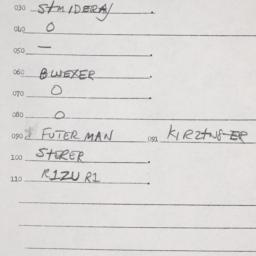 030 
040 O
050 —
060 BWEXER
070 O
080 O
090 FUTERMAN 091 KIRZNSER
100 STERER
110 RIZURI